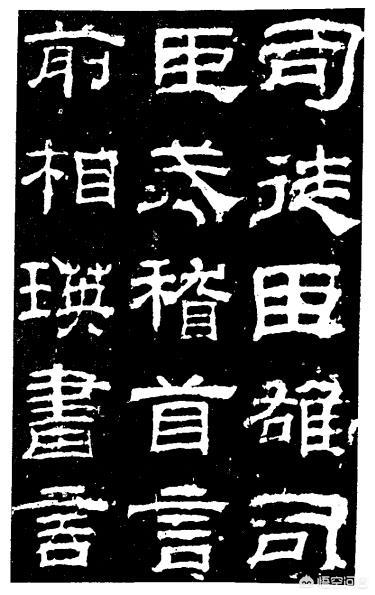 司徒臣雄司
臣戒稽首言
前相瑛書言
悟空问答